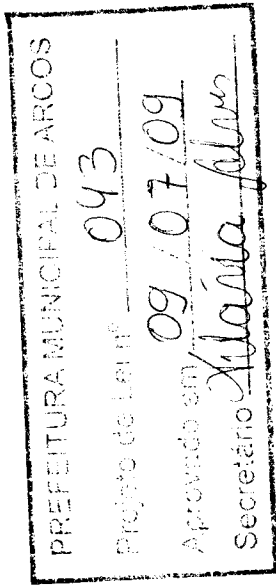 PREFEITURA MUNICIPAL DE ARCOS
Projeto de Lei nº 043
Aprovado em 09/07/09
Secretário